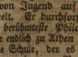 von Jugend auf
welt. Er durchfor
berühmteste Phil
endlich zu Athen
e Schule, der es